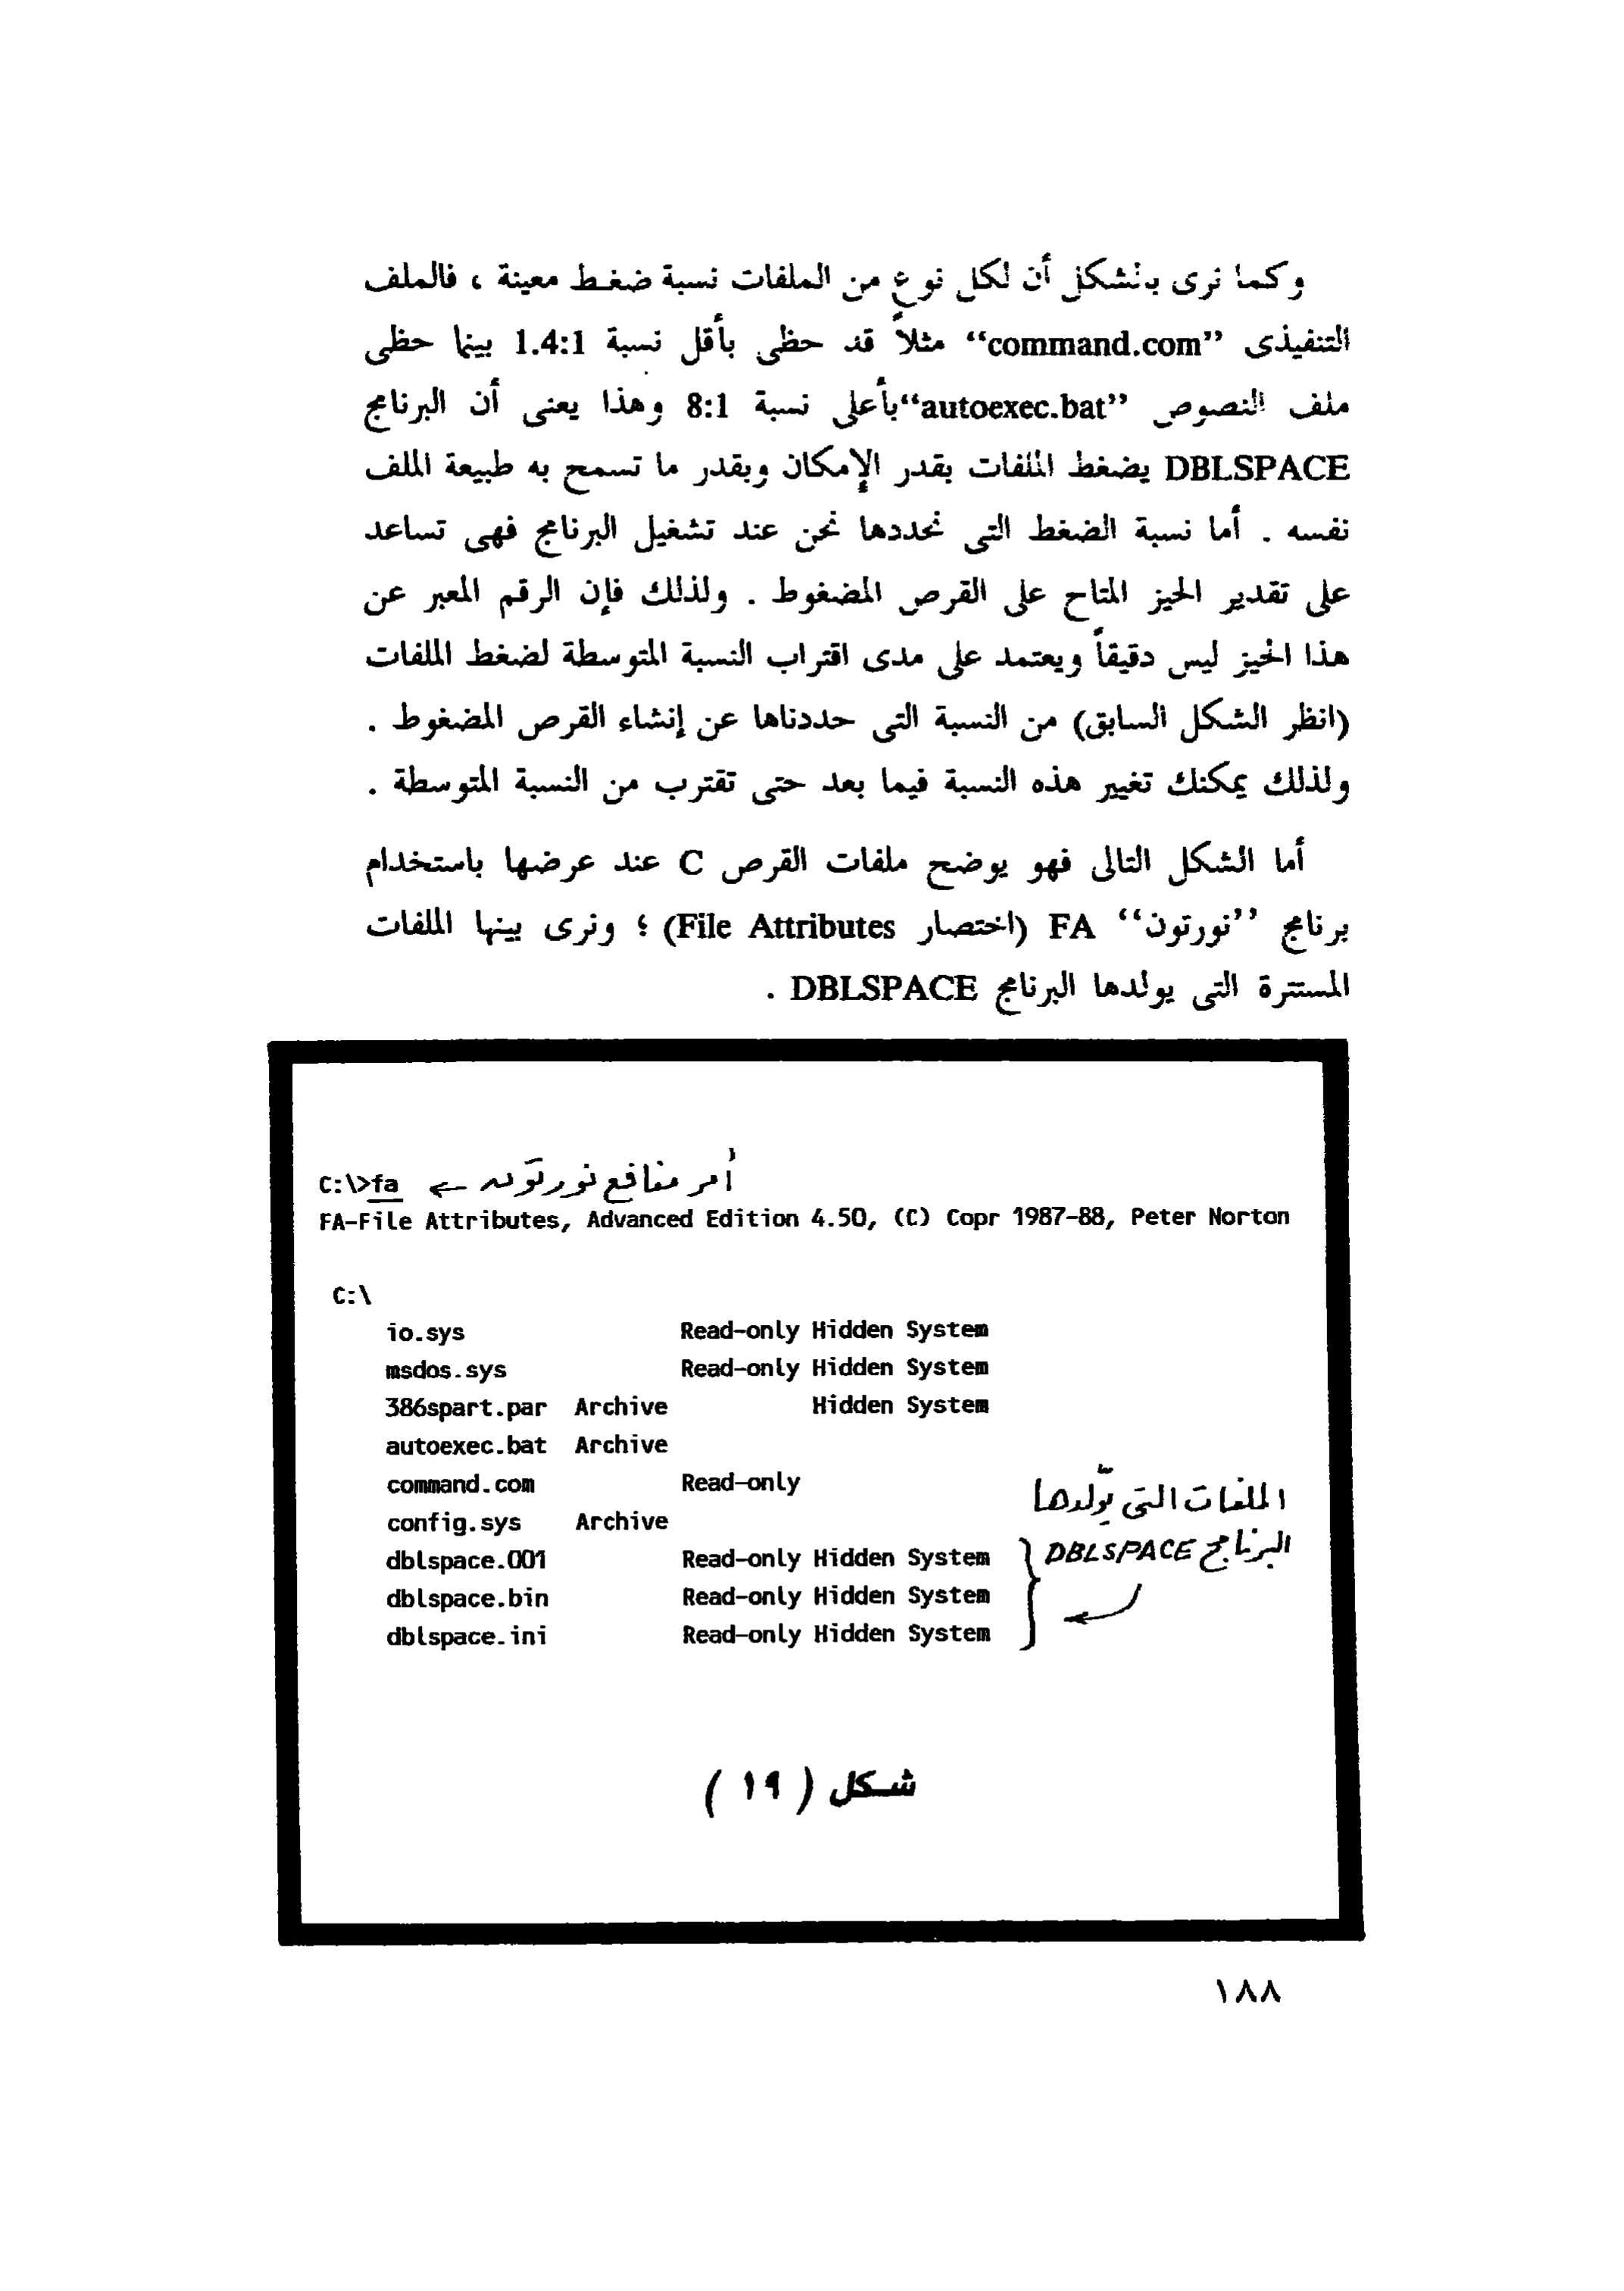 وكما نرى بالشكل أن لكل نوع من الملفات نسبة ضغط معينة ، فالملف
التنفيذى “command.com” مثلاً قد حظى بأقل نسبة 1.4:1 بينما حظى
ملف النصوص “autoexec.bat” بأعلى نسبة 8:1 وهذا يعنى أن البرنامج
DBLSPACE يضغط الملفات بقدر الإمكان وبقدر ما تسمح به طبيعة الملف
نفسه . أما نسبة الضغط التى نحددها نحن عند تشغيل البرنامج فهى تساعد
على تقدير الحيز المتاح على القرص المضغوط . ولذلك فإن الرقم المعبر عن
هذا الحيز ليس دقيقاً ويعتمد على مدى اقتراب النسبة المتوسطة لضغط الملفات
(انظر الشكل السابق) من النسبة التى حددناها عن إنشاء القرص المضغوط .
ولذلك يمكنك تغيير هذه النسبة فيما بعد حتى تقترب من النسبة المتوسطة .
أما الشكل التالى فهو يوضح ملفات القرص C عند عرضها باستخدام
برنامج ‘‘نورتون’’ FA (اختصار File Attributes) ؛ ونرى بينها الملفات
المستترة التى يولدها البرنامج DBLSPACE .
C:\>fa ← أمر منافع نورتون
FA-File Attributes, Advanced Edition 4.50, (C) Copr 1987-88, Peter Norton
C:\
io.sys Read-only Hidden System
msdos.sys Read-only Hidden System
386spart.par Archive Hidden System
autoexec.bat Archive
command.com Read-only
config.sys Archive
dblspace.001 Read-only Hidden System
dblspace.bin Read-only Hidden System
dblspace.ini Read-only Hidden System
الملفات التى يولّدها
البرنامج DBLSPACE
شكل ( ١٩ )
١٨٨